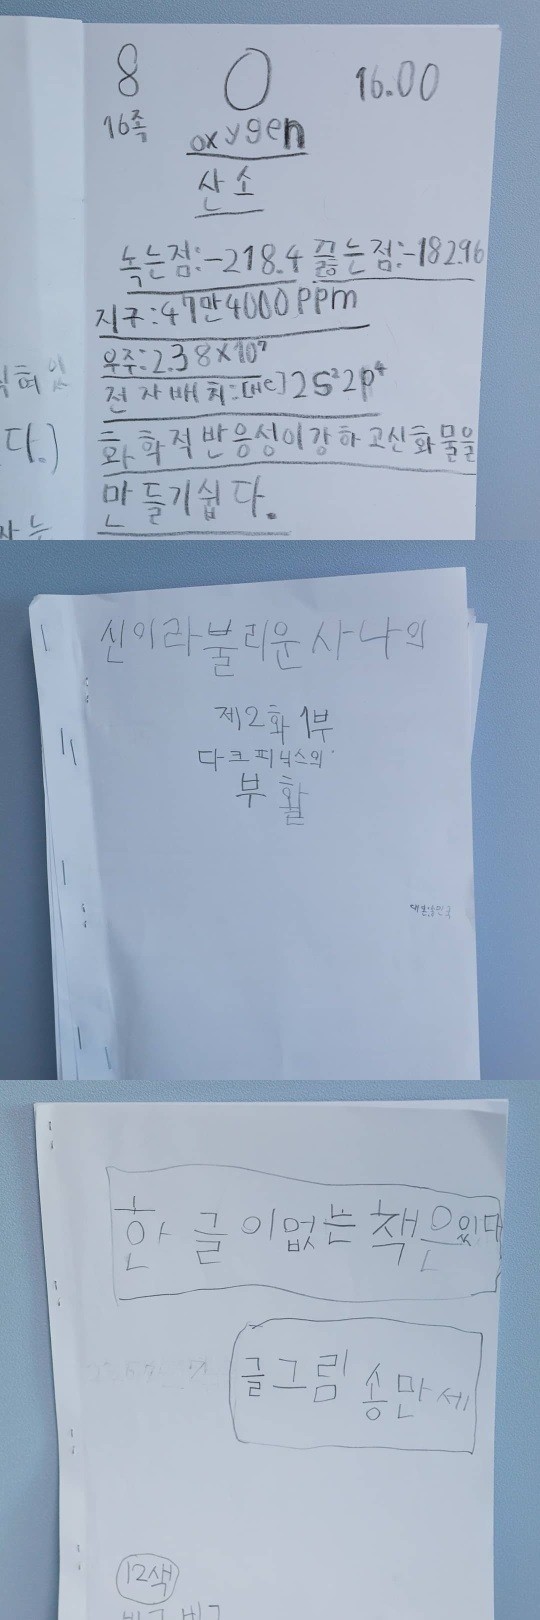 8 O 16.00
16족 oxygen
산소
녹는점:-218.4 끓는점:-182.96
지구:47만4000ppm
우주:2.38×10⁷
전자배치:[He]2S²2p⁴
화학적반응성이강하고산화물을
만들기쉽다.
다.)
신이라불리운사나의
제2화1부
다크피닉스의
부활
대한민국
한글이없는책은있다
글그림 송만세
12색